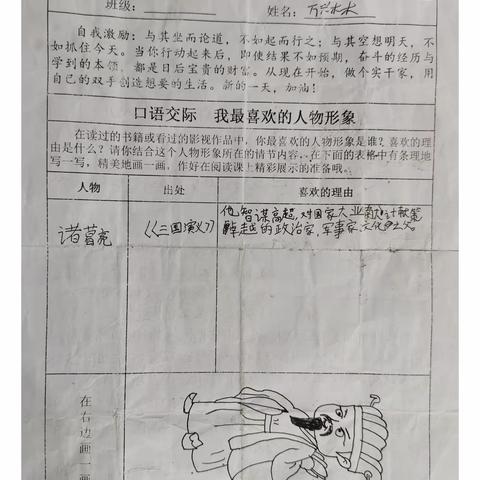 班级: 姓名: 万兴水木
自我激励:与其坐而论道,不如起而行之;与其空想明天,不
如抓住今天。当你行动起来后,即使结果不如预期,奋斗的经历与
学到的本领,都是日后宝贵的财富。从现在开始,做个实干家,用
自己的双手创造想要的生活。新的一天,加油!
口语交际 我最喜欢的人物形象
在读过的书籍或看过的影视作品中,你最喜欢的人物形象是谁?喜欢的理
由是什么?请你结合这个人物形象所在的情节内容,在下面的表格中有条理地
写一写,精美地画一画,作好在阅读课上精彩展示的准备哦。
人物 出处 喜欢的理由
诸葛亮 《三国演义》 他智谋高超,对国家大业献计献策
的政治家,军事家,文化
在
右
边
画
一
画